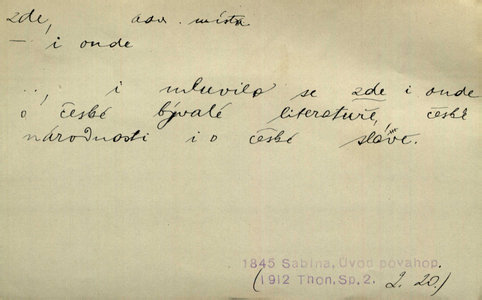 zde, adv. místa
— i onde
..., i mluvilo se zde i onde
o české bývalé literatuře, české
národnosti i o české slávě.
1845 Sabina, Úvod povahop.
(1912 Thon. Sp. 2. 2. 20.)